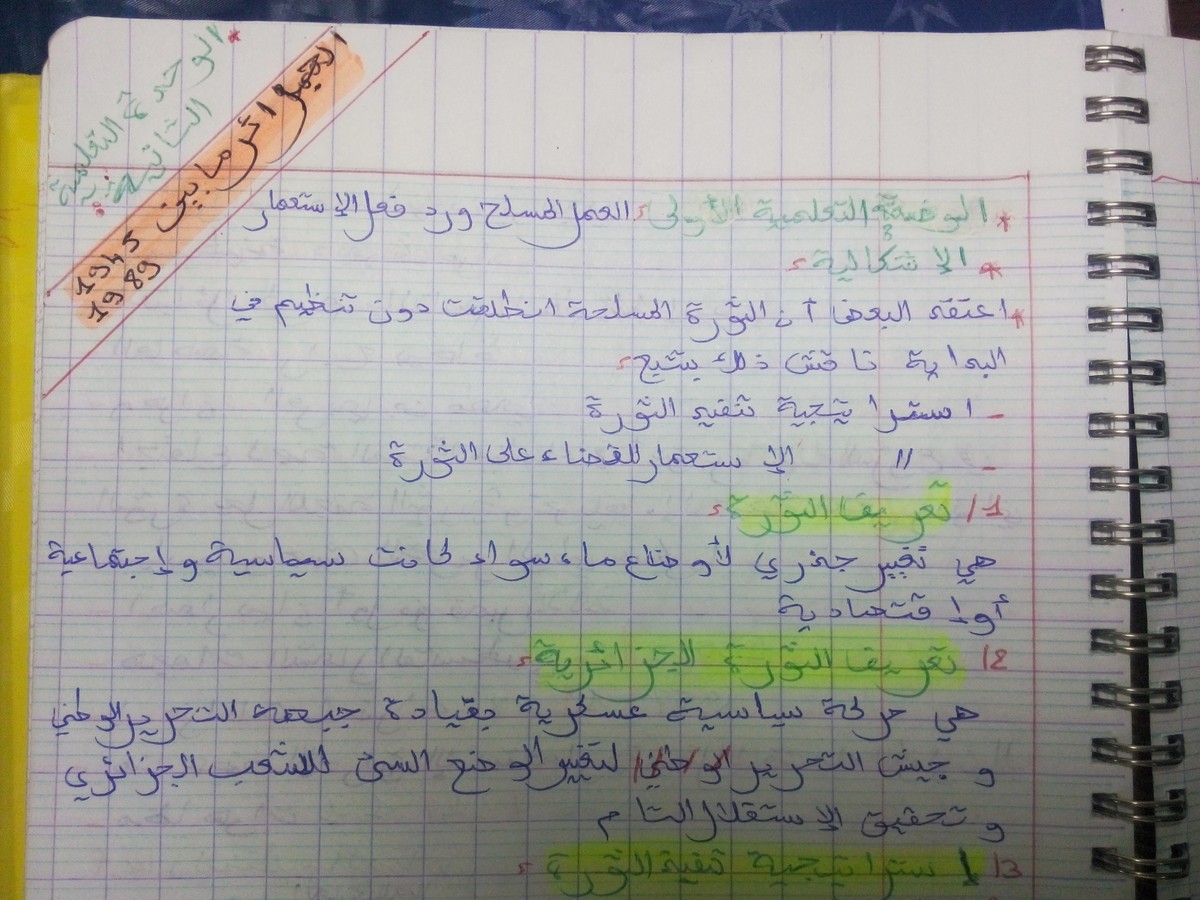 * الوحدة التعلمية
الثانية:
الجزائر ما بين 1945
1989
* الوضعية التعلمية الأولى: العمل المسلح ورد فعل الإستعمار
* الإشكالية:
* اعتقد البعض أن الثورة المسلحة انطلقت دون تنظيم في
البداية ناقش ذلك بتتبع:
- استراتيجية تنفيذ الثورة
- " الإستعمار للقضاء على الثورة
1/ تعريف الثورة:
هي تغيير جذري لأوضاع ما، سواء كانت سياسية و إجتماعية
أو إقتصادية
2/ تعريف الثورة الجزائرية:
هي حركة سياسية عسكرية بقيادة جبهة التحرير الوطني
و جيش التحرير الوطني لتغيير الوضع السيئ للشعب الجزائري
و تحقيق الإستقلال التام
3/ إستراتيجية تنفيذ الثورة: